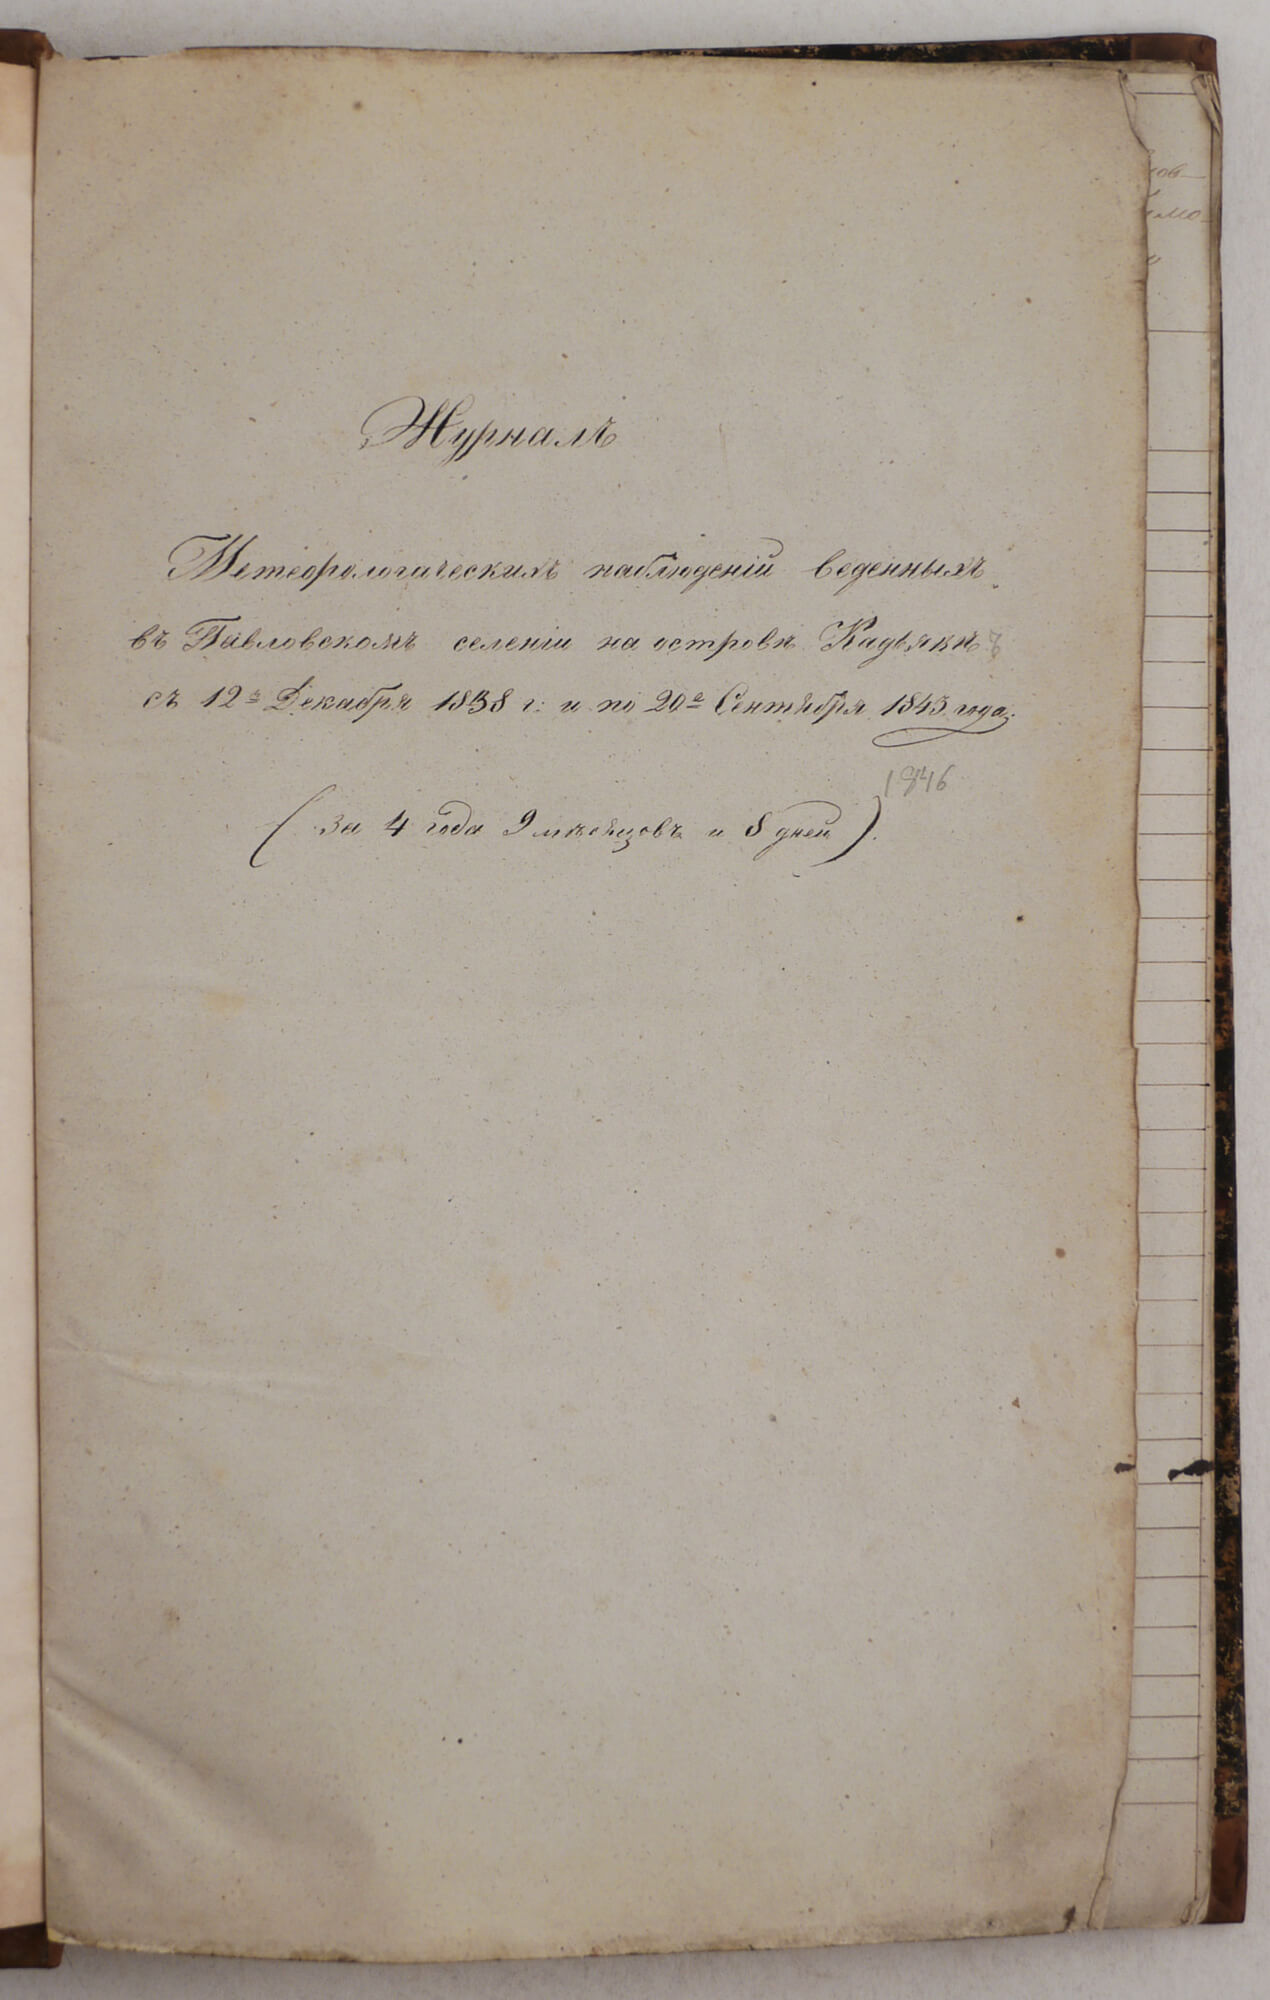 Журналъ
Метеорологическихъ наблюденій веденныхъ
въ Павловскомъ селеніи на островѣ Кадьякѣ
съ 12го Декабря 1838 г: и по 20е Сентября 1843 года.
1846
(за 4 года 9 мѣсяцовъ и 8 дней).